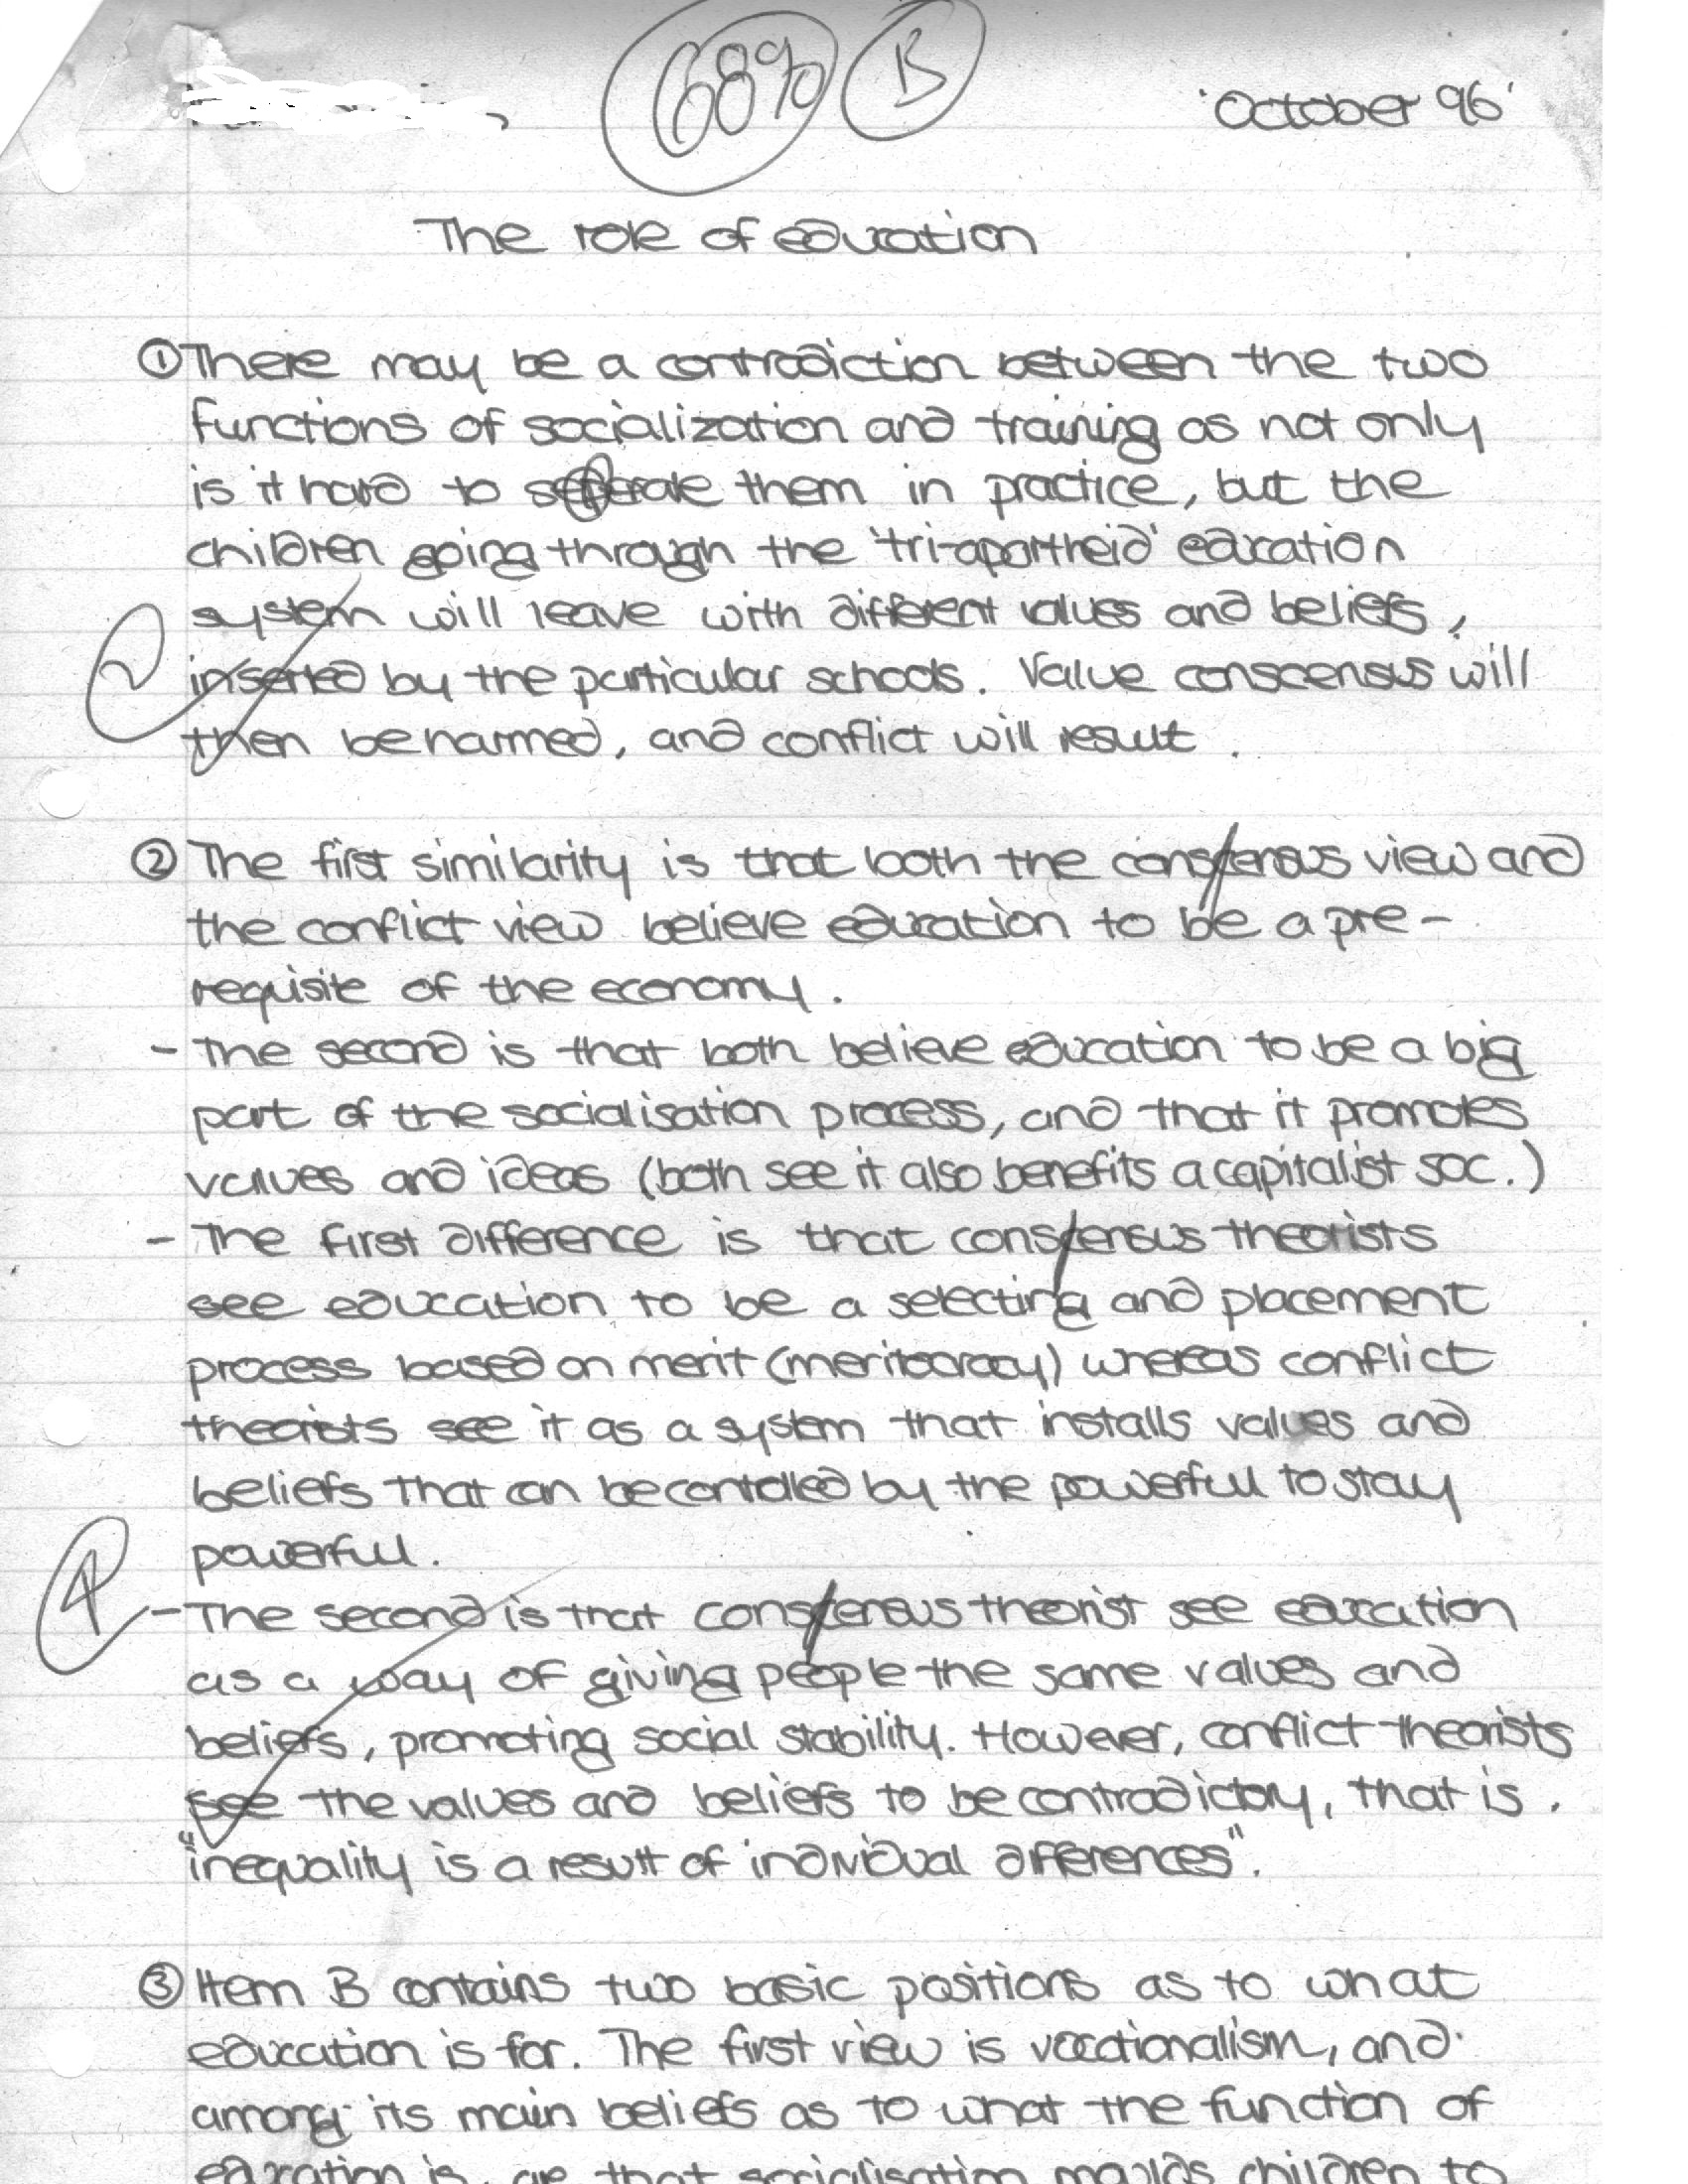 68% B
'October 96'
The role of education
① There may be a contradiction between the two
functions of socialization and training as not only
is it hard to seperate them in practice, but the
children going through the 'tri-apartheid' education
system will leave with different values and beliefs,
2
inserted by the particular schools. Value conscensus will
then be harmed, and conflict will result.
② The first similarity is that both the conscensus view and
the conflict view believe education to be a pre-
requisite of the economy.
- The second is that both believe education to be a big
part of the socialisation process, and that it promotes
values and ideas (both see it also benefits a capitalist soc.)
- The first difference is that conscensus theorists
see education to be a selecting and placement
process based on merit (meritocracy) whereas conflict
theorists see it as a system that installs values and
beliefs that can be controlled by the powerful to stay
powerful.
4
- The second is that conscensus theorist see education
as a way of giving people the same values and
beliefs, promoting social stability. However, conflict theorists
see the values and beliefs to be contradictory, that is.
"inequality is a result of individual differences".
③ Item B contains two basic positions as to what
education is for. The first view is vocationalism, and
among its main beliefs as to what the function of
education is, are that socialisation moulds children to